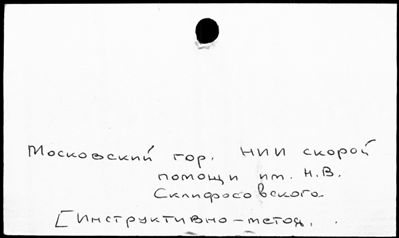 Московский гор. НИИ скорой
помощи им. Н.В.
Склифосовского
[Инструктивно-метод. .